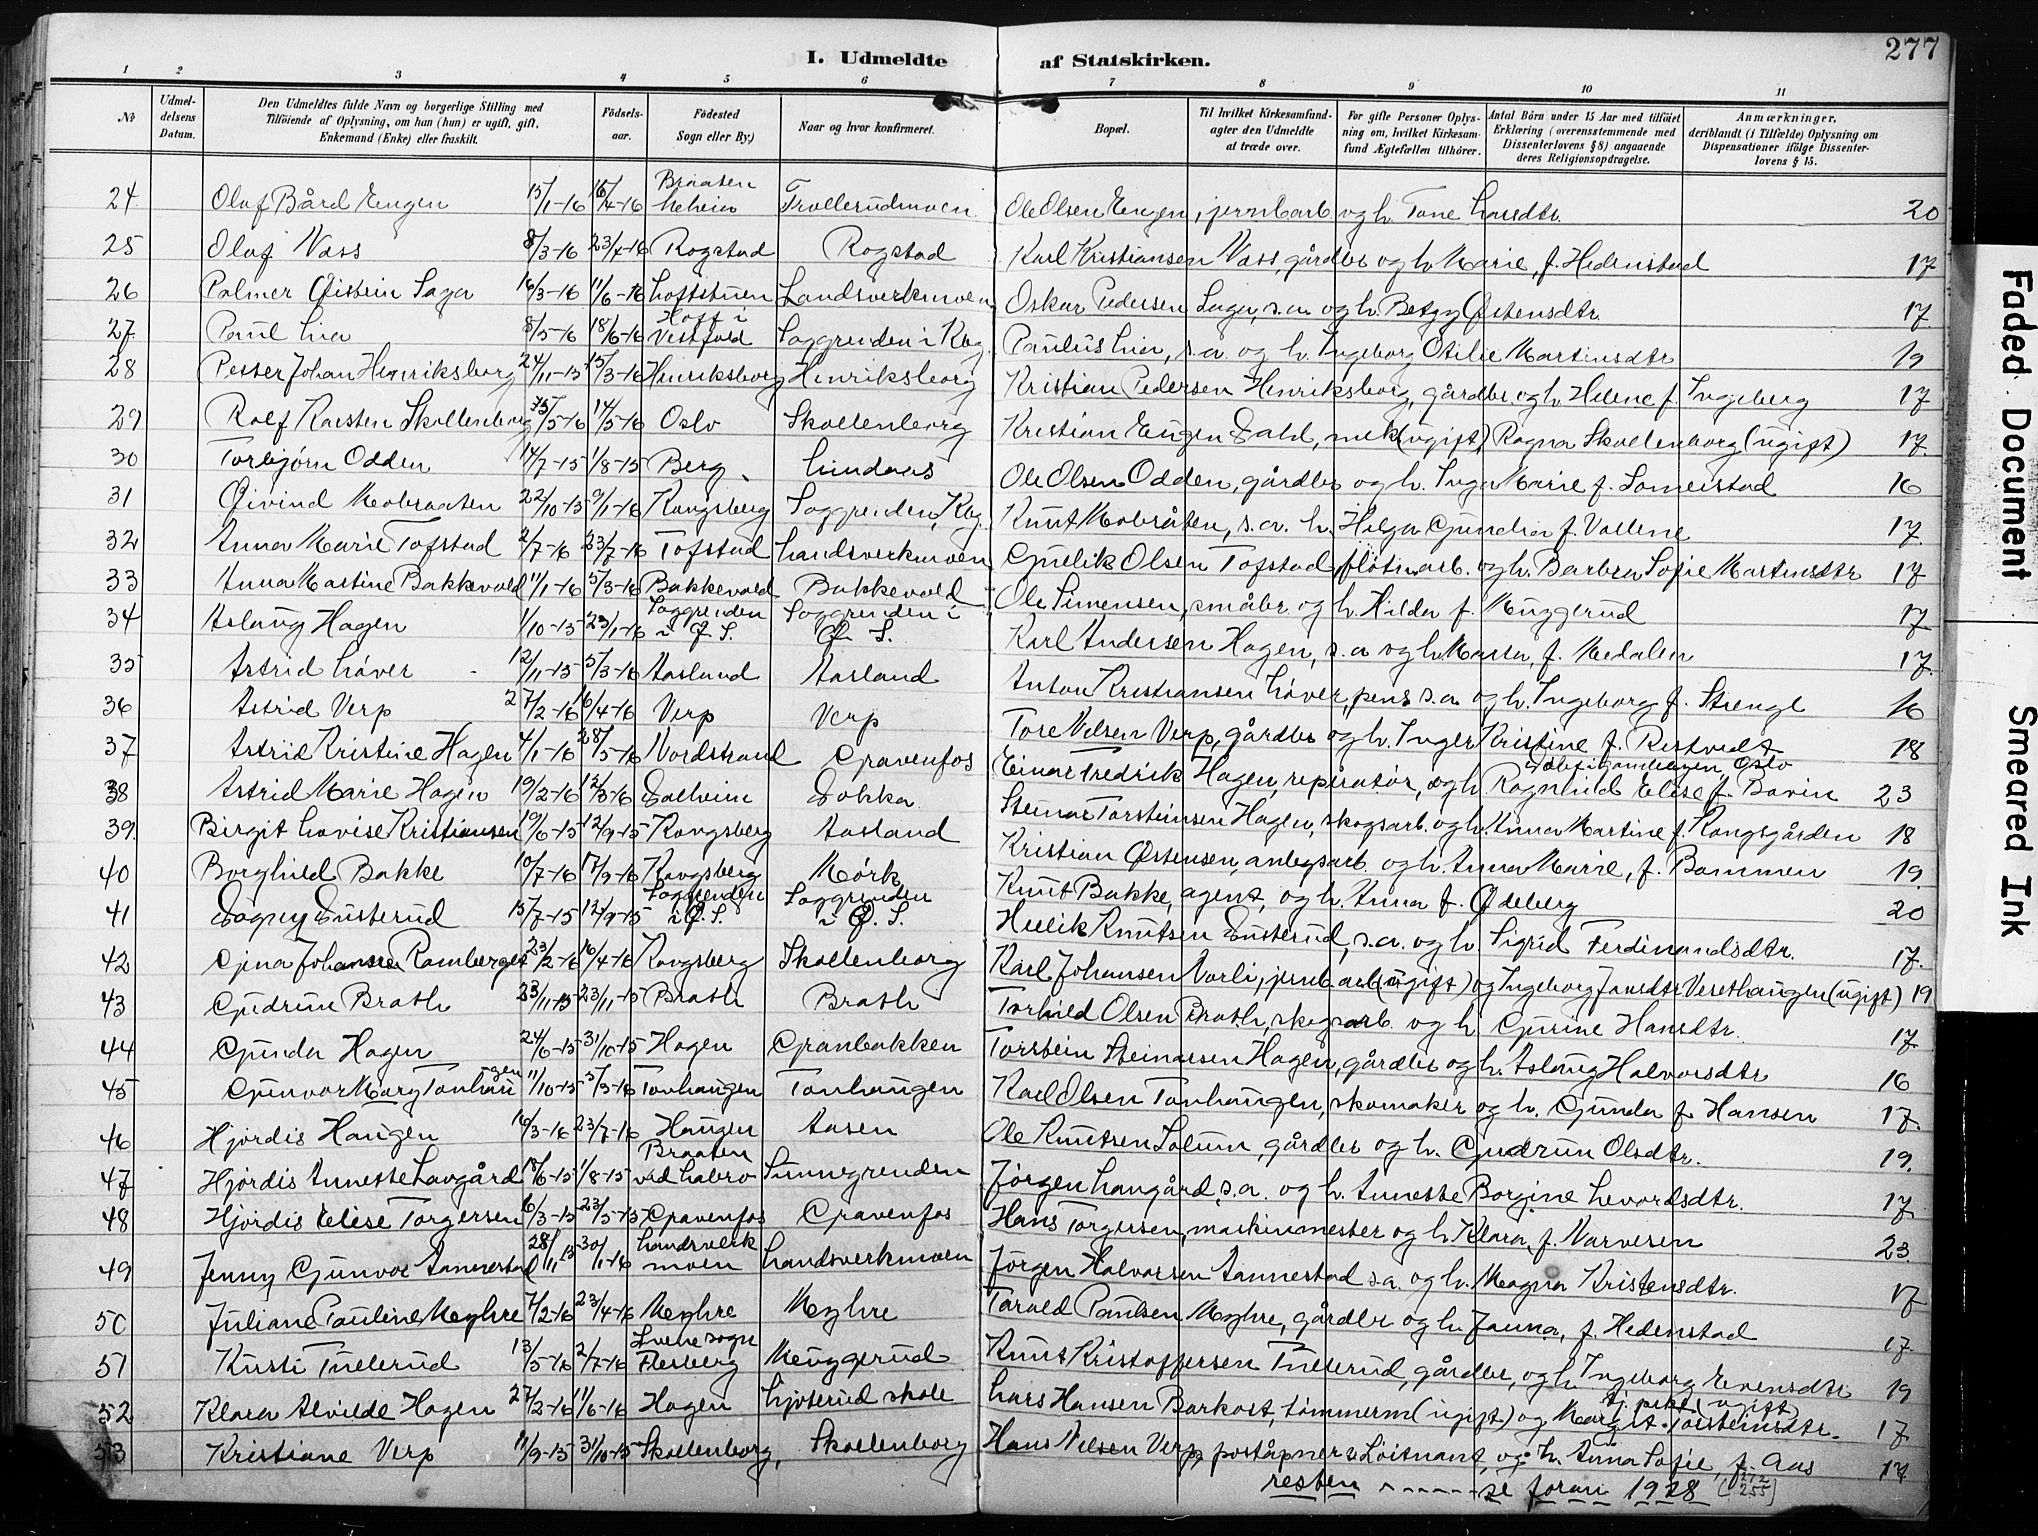 277
I. Udmeldte af Statskirken.
1 2 3 4 5 6 7 8 9 10 11
№ Udmeldelsens Datum. Den Udmeldtes fulde Navn og borgerlige Stilling med Tilföiende af Oplysning, om han (hun) er ugift, gift, Enkemand (Enke) eller fraskilt. Födselsaar. Födested Sogn eller By) Naar og hvor konfirmeret. Bopæl. Til hvilket Kirkesamfund agter den Udmeldte at træde over. For gifte Personer Oplysning om, hvilket Kirkesamfund Ægtefællen tilhörer. Antal Börn under 15 Aar med tilföiet Erklæring (overensstemmende med Dissenterlovens § 8) angaaende deres Religionsopdragelse. Anmærkninger, deriblandt (i Tilfælde) Oplysning om Dispensationer ifölge Dissenterlovens § 15.
24 Olaf Bård Engen 15/1-16 16/4-16 Braaten Trollerudmoen Ole Olsen Engen, jernbarb og h. Tone Larsdtr. 20
25 Olaf Vass 8/3-16 23/4-16 Rogstad Rogstad Karl Kristiansen Vass, gårdbr og h. Marie, f. Hedenstad 17
26 Palmer Øistein Saga 16/3-16 11/6-16 Loftstuen Landsverkmoen Oskar Pedersen Saga, s.a. og h. Betzy Østensdtr 17
27 Paul Lia 8/5-16 18/6-16 Hoff i Vestfold Saggrenden i Kbg. Paulus Lia, s.a. og h. Ingeborg Otilie Martinsdtr 19
28 Petter Johan Henriksborg 24/11-15 15/3-16 Henriksborg Henriksborg Kristian Pedersen Henriksborg, gårdbr og h. Helene f. Ingeberg 17
29 Rolf Karsten Skollenborg /5-16 14/5-16 Oslo Skollenborg Kristian Eugen Dahl, mek (ugift) Ragna Skollenborg (ugift) 17
30 Torbjørn Odden 14/7-15 1/8-15 Berg Lindaas Ole Olsen Odden, gårdbr og h. Inga Marie f. Lomeistad 16
31 Øivind Mobraaten 22/10-15 9/1-16 Kongsberg Saggrenden, Kbg. Knut Mobråten, s.a. h. Helga Gundia f. Vollene 17
32 Anna Marie Tofstad 2/7-16 23/7-16 Tofstad Landsverkmoen Gulik Olsen Tofstad fløtn.arb. og h. Barbra Sofie Martinsdtr 17
33 Anna Martine Bakkevold 11/1-16 5/3-16 Bakkevold Bakkevold Ole Simensen, småbr og h. Hilda f. Muggerud 17
34 Aslaug Hagen 1/10-15 23/1-16 Saggrenden i Ø. S. Saggrenden i Ø. S. Karl Andersen Hagen, s.a og h. Marta, f. Medalen 17
35 Astrid Løver 12/11-15 5/3-16 Aasland Aasland Anton Kristiansen Løver, pens s.a og h. Ingeborg f. Stengl 16
36 Astrid Verp 27/2-16 16/4-16 Verp Verp Tore Nilsen Verp, gårdbr og h. Inger Kristine f. Ristvedt 18
37 Astrid Kristine Hagen 4/1-16 28/5-16 Nordstrand Gravenfos Einar Fredrik Hagen, reparatør, og h. Ragnhild Elise f. Bovin 23
38 Astrid Marie Hagen 19/2-16 12/3-16 Solheim Dokka Steinar Torsteinsen Hagen, skogsarb. og h. Anna Martine f. Kongsgården 18
39. Birgit Lovise Kristiansen 19/6-15 12/9-15 Kongsberg Aasland Kristian Østensen, anlegsarb. og h. Anna Marie, f. Bommen 19
40 Borghild Bakke 10/7-16 17/9-16 Kongsberg Mørk Knut Bakke, agent, og h. Anna f. Ødeberg 20
41 Dagny Dusterud 15/7-15 12/9-15 Saggrenden i Ø. S. Saggrenden i Ø. S. Hellik Knutsen Dusterud, s.a. og h. Sigrid Ferdinandsdtr. 17.
42 Gina Johanne Ramberget 23/2-16 16/4-16 Kongsberg Skollenborg Karl Johansen Varli, jernb.arb (ugift) og Ingeborg Jansdtr Veresthaugen (ugift) 19
43 Gudrun Bratli 23/11-15 Bratli Bratli Torkild Olsen Bratli, skogsarb. og h. Gurine Hansdtr. 17
44 Gunda Hagen 24/6-15 31/10-15 Hagen Granbakken Torstein Steinarsen Hagen, gårdbr og h. Aslaug Halvorsdtr 16
45 Gunvor Marg Tonhaugen 11/10-15 5/3-16 Tonhaugen Tonhaugen Karl Olsen Tonhaugen, skomaker og h. Gunda f. Hansen 17
46 Hjørdis Haugen 16/3-16 23/7-16 Haugen Aasen Ole Knutsen Solum, gårdbr og h. Gudrun Olsdtr. 19.
47 Hjørdis Annette Lovgård 18/6-15 1/8-15 Braaten ved Labro Sunnegrenden Jørgen Laugård, s.a. og h. Annette Borgine Levordsdtr. 17
48 Hjørdis Elise Torgersen 6/3-15 23/5-15 Gravenfos Gravenfos Hans Torgersen, maskinmester og h. Klara, f. Narvesen 23.
49 Jenny Gunvor Aannestad 28/11 15 30/1-16 Landsverkmoen Landsverkmoen Jørgen Halvorsen Aannestad s.a. og h. Magna Kristensdtr. 17
50 Juliane Pauline Myhre 7/2-16 23/4-16 Myhre Myhre Torvald Paulsen Myhre, gårdbr og h. Janna, f. Hedenstad 17
51 Kirsti Tuelerud 13/5-16 2/7-16 Svene sogn Flesberg Muggerud Knut Kristoffersen Tuelerud, gårdbr, og h. Ingeborg Evensdtr 19
52 Klara Alvilde Hagen 27/2-16 11/6-16 Hagen Ljøterud skole Lars Hansen Barkost, tømmerm (ugift) og Margit Torsteinsdtr. tj. pike (ugift) 17
53 Kristiane Verp 11/9-15 31/10-15 Skollenborg, Skollenborg Hans Nilsen Verp, poståpner & Løitnant, og h. Anna Sofie, f. Aas 17
resten - - - - - se foran 1928
Faded Document Smeared Ink